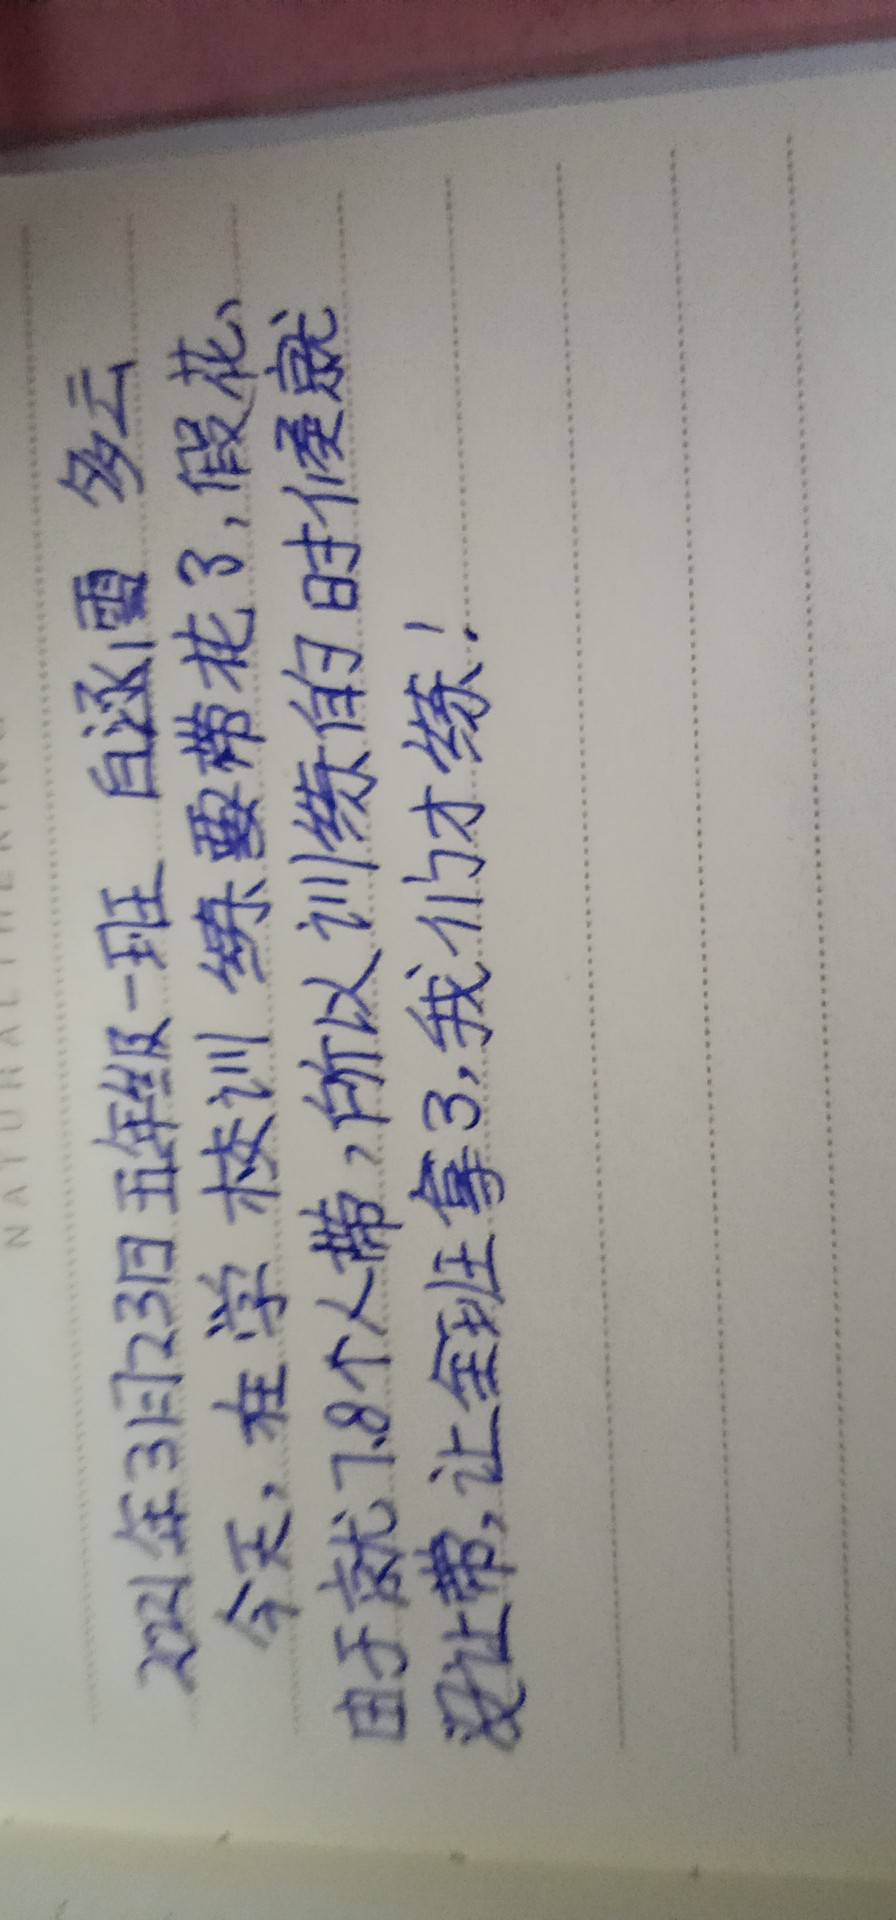 2021年3月23日五年级一班 白涵雪 多云
今天，在学校训练要带花了，假花、
由于就7.8个人带，所以训练的时候就
没让带，让全班拿了，我们才练！